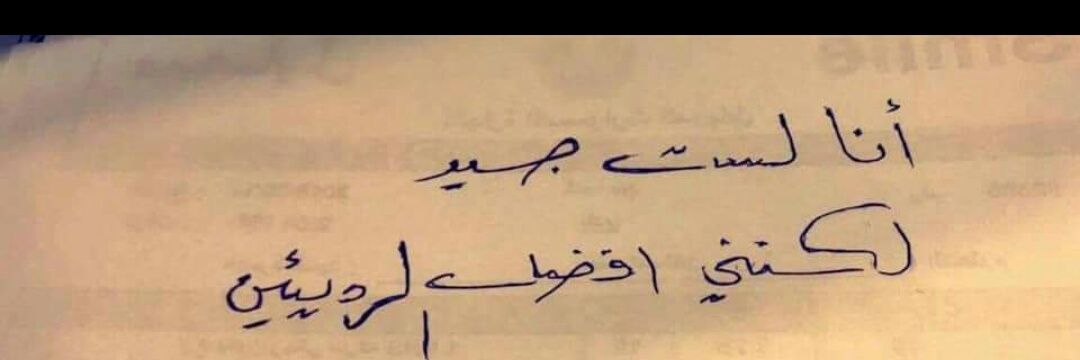 أنا لست جيد
لكنني افضل الرديئين